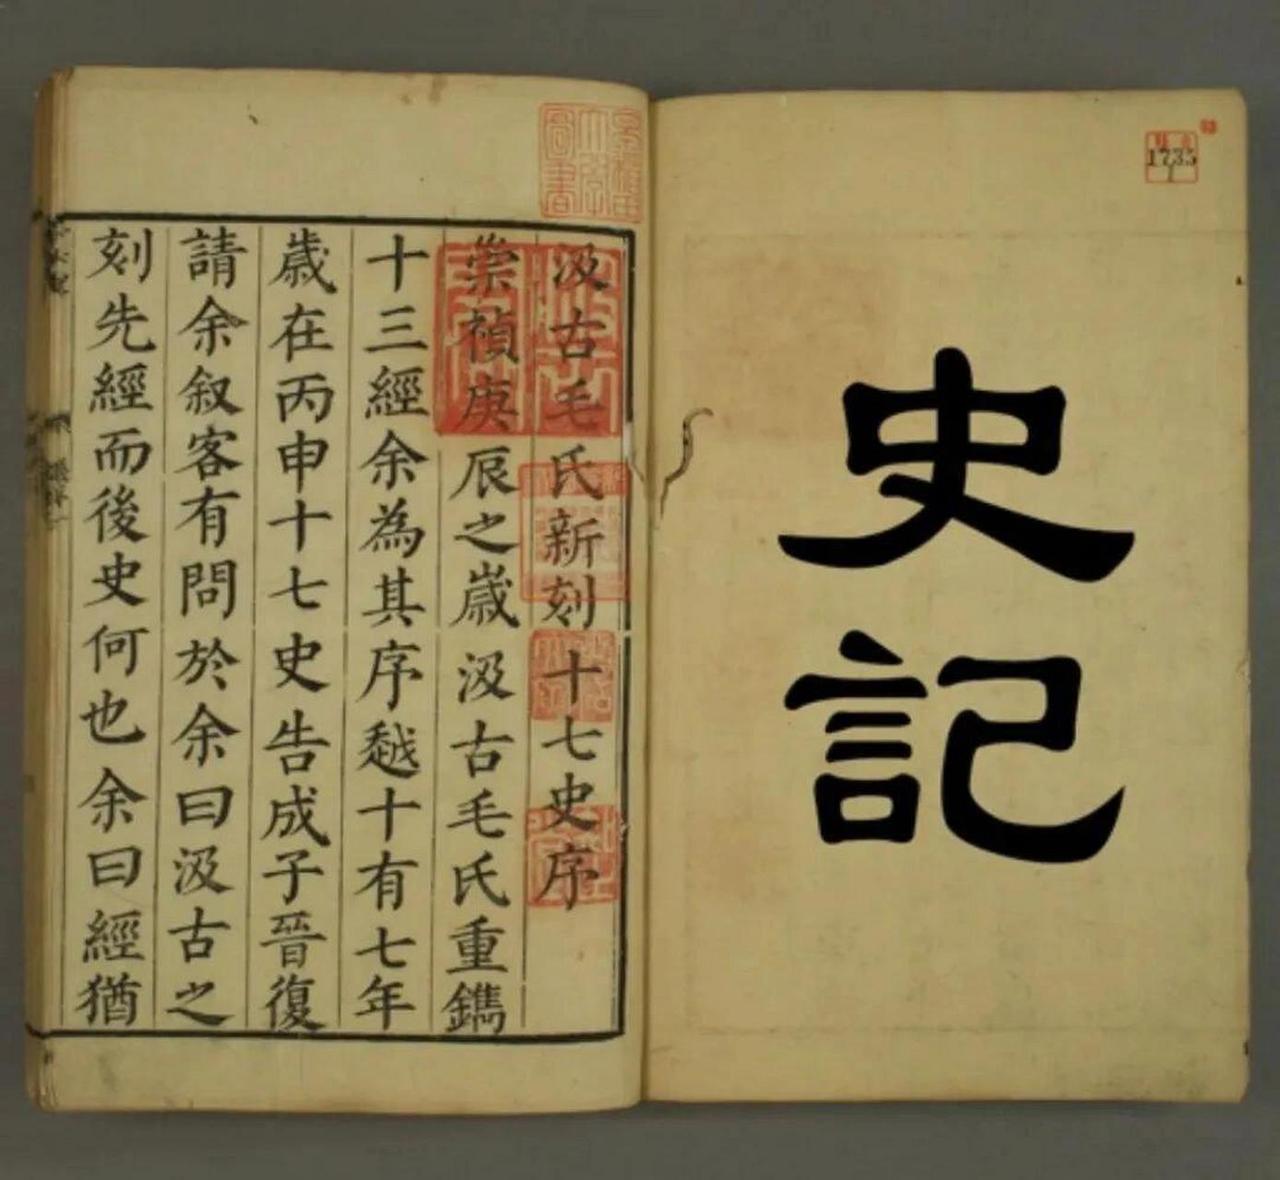 史記
1735
1
汲古毛氏新刻十七史序
崇禎庚辰之歲汲古毛氏重鐫
十三經余為其序越十有七年
歲在丙申十七史告成子晉復
請余叙客有問於余曰汲古之
刻先經而後史何也余曰經猶
圖書